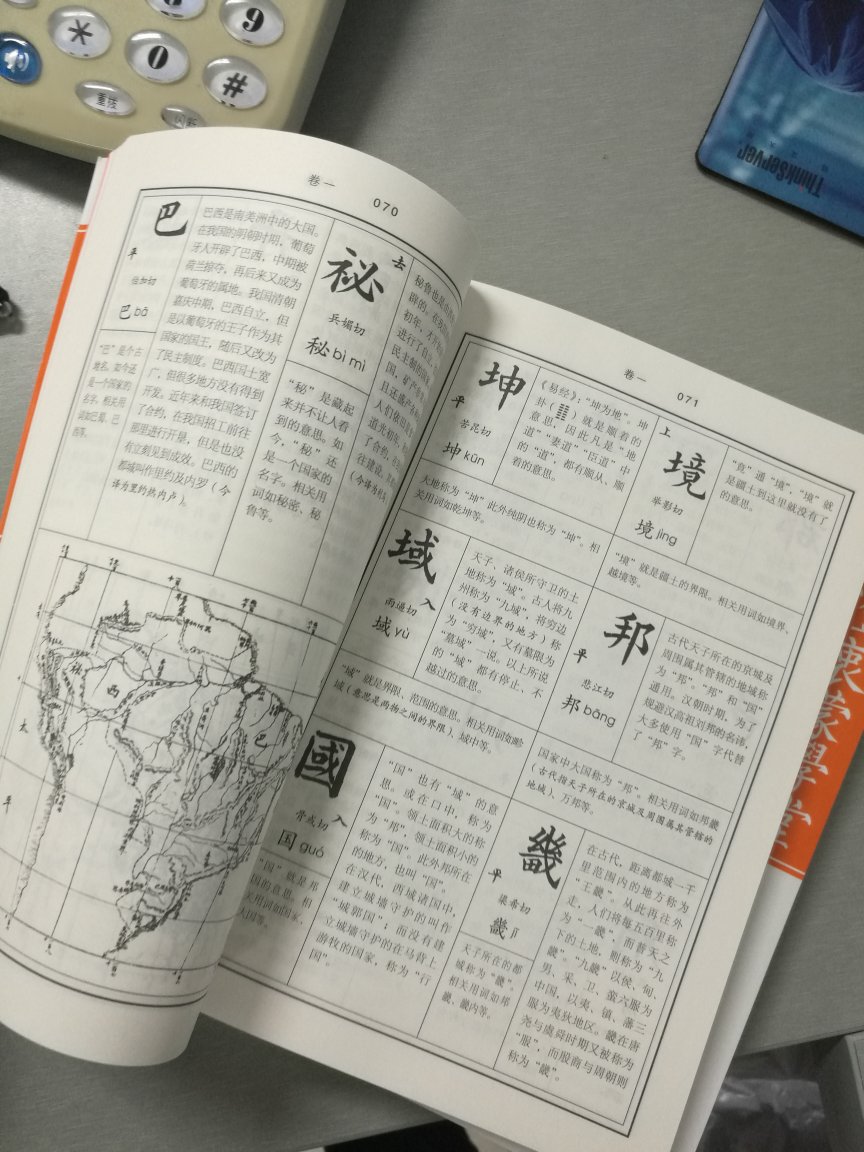 9
*
0
#
重拨
ThinkServer
卷一
070
巴
平
伯加切
巴 bā
巴西是南美洲中的大国。
在我国的明朝时期，葡萄
牙人开辟了巴西，中期被
荷兰掠夺，再后来又成为
葡萄牙的属地。我国清朝
嘉庆中期，巴西自立，但
是以葡萄牙的王子作为其
国家的国王，随后又改为
了民主制度。巴西国土宽
广，但很多地方没有得到
开发。近年来和我国签订
了合约，在我国招工前往
那里进行开垦，但是也没
有立刻见到成效。巴西的
都城叫作里约及内罗（今
译为里约热内卢）。
“巴”是个古
地名。如今还
是一个国家的
名字。相关用
词如巴蜀、巴
西等。
秘
去
兵媚切
秘 bì mì
“秘”是藏起
来并不让人看
到的意思。如
今，“秘”还
是一个国家的
名字。相关用
词如秘密、秘
鲁等。
秘
西
巴
太
平
卷一
071
坤
平
苦昆切
坤 kūn
《易经》：“坤为地”。坤
卦（䷁）就是顺着的
意思。因此凡是“地
道”“妻道”“臣道”中
的“道”，都有顺从、顺
着的意思。
大地称为“坤”此外纯阴也称为“坤”。相
关用词如乾坤等。
境
上
举影切
境 jìng
“竟”通“境”，“境”就
是疆土到这里就没有了
的意思。
“境”就是疆土的界限。相关用词如境界、
越境等。
域
入
雨逼切
域 yù
天子、诸侯所守卫的土
地称为“域”，古人将九
州称为“九域”，将穷边
（没有边界的地方）称
为“穷域”，又有墓限为
“墓域”一说。以上所说
的“域”都有停止、不
越过的意思。
“域”就是界限、范围的意思。相关用词如畛
域（意思是两物之间的界限）、域中等。
邦
平
悲江切
邦 bāng
古代天子所在的京城及
周围属其管辖的地域称
为“邦”。“邦”和“国”
通用。汉朝时期，为了
规避汉高祖刘邦的名讳，
大多使用“国”字代替
了“邦”字。
国家中大国称为“邦”。相关用词如邦畿
（古代指天子所在的京城及周围属其管辖的
地域）、万邦等。
國
入
骨或切
国 guó
“国”也有“域”的意
思。或在口中，称为
“国”。领土面积大的称
为“邦”，领土面积小的
称为“国”。此外邦所在
的地方，也叫“国”。
在汉代，西域诸国中，
建立城墙守护的叫作
“城郭国”；而没有建
立城墙守护的在马背上
游牧的国家，称为“行
国”。
“国”就是邦
国的意思。相
关用词如国家、
大国等。
畿
平
渠希切
畿 jī
在古代，距离都城一千
里范围内的地方称为
“王畿”。从此再往外
走，人们将每五百里称
为“一畿”，而普天之
下的土地，则称为“九
畿”。“九畿”以侯、甸、
男、采、卫、蛮六服为
中国，以夷、镇、藩三
服为夷狄地区。畿在唐
尧与虞舜时期又被称为
“服”，而殷商与周朝则
称为“畿”。
天子所在的都
城称为“畿”。
相关用词如邦
畿、畿内等。
蒙學堂